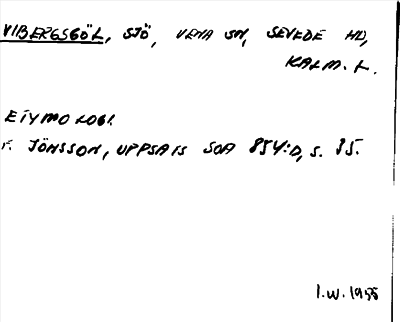 VIBERGSGÖL, SJÖ, VENA SN, SEVEDE HD,
KALM. L.
ETYMOLOGI
F. JÖNSSON, UPPSATS SOA 854:D, S. 35.
I.W. 1955